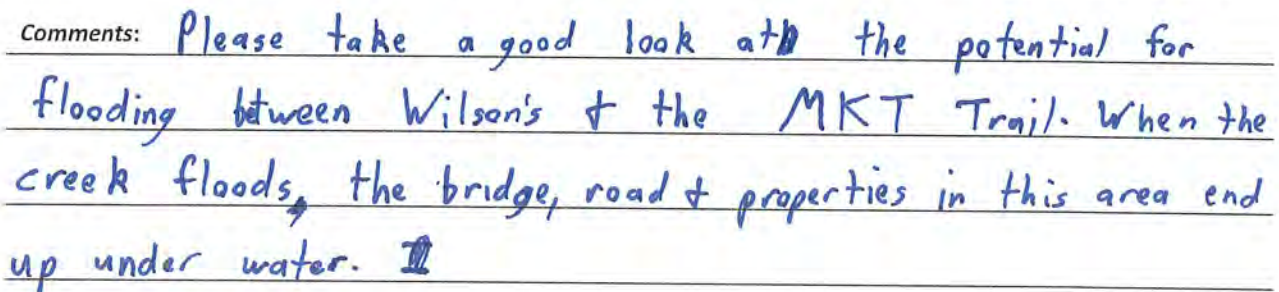 Comments: Please take a good look at the potential for
flooding between Wilson's & the MKT Trail. When the
creek floods, the bridge, road & properties in this area end
up under water.